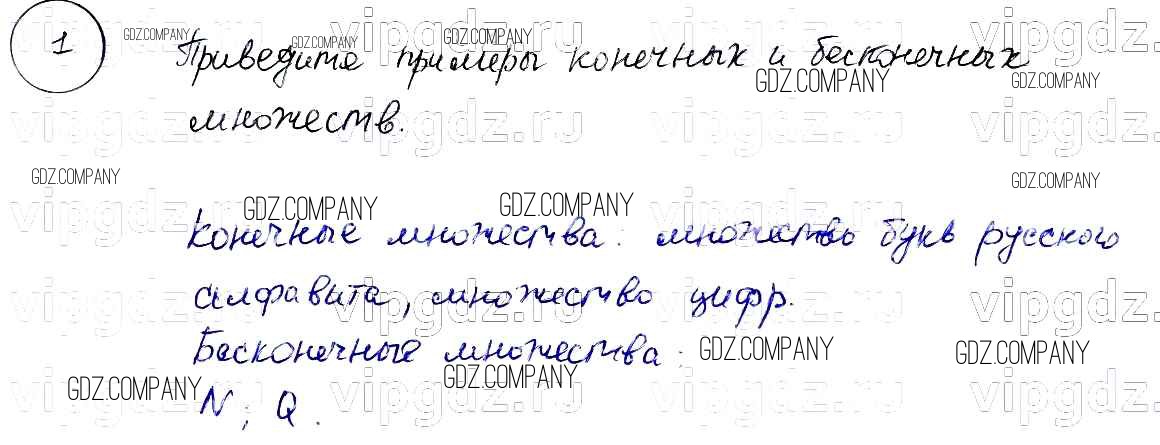 1 Приведите примеры конечных и бесконечных
множеств.
Конечные множества: множество букв русского
алфавита, множество цифр.
Бесконечные множества:
N; Q.
GDZ.COMPANY
vipgdz.ru